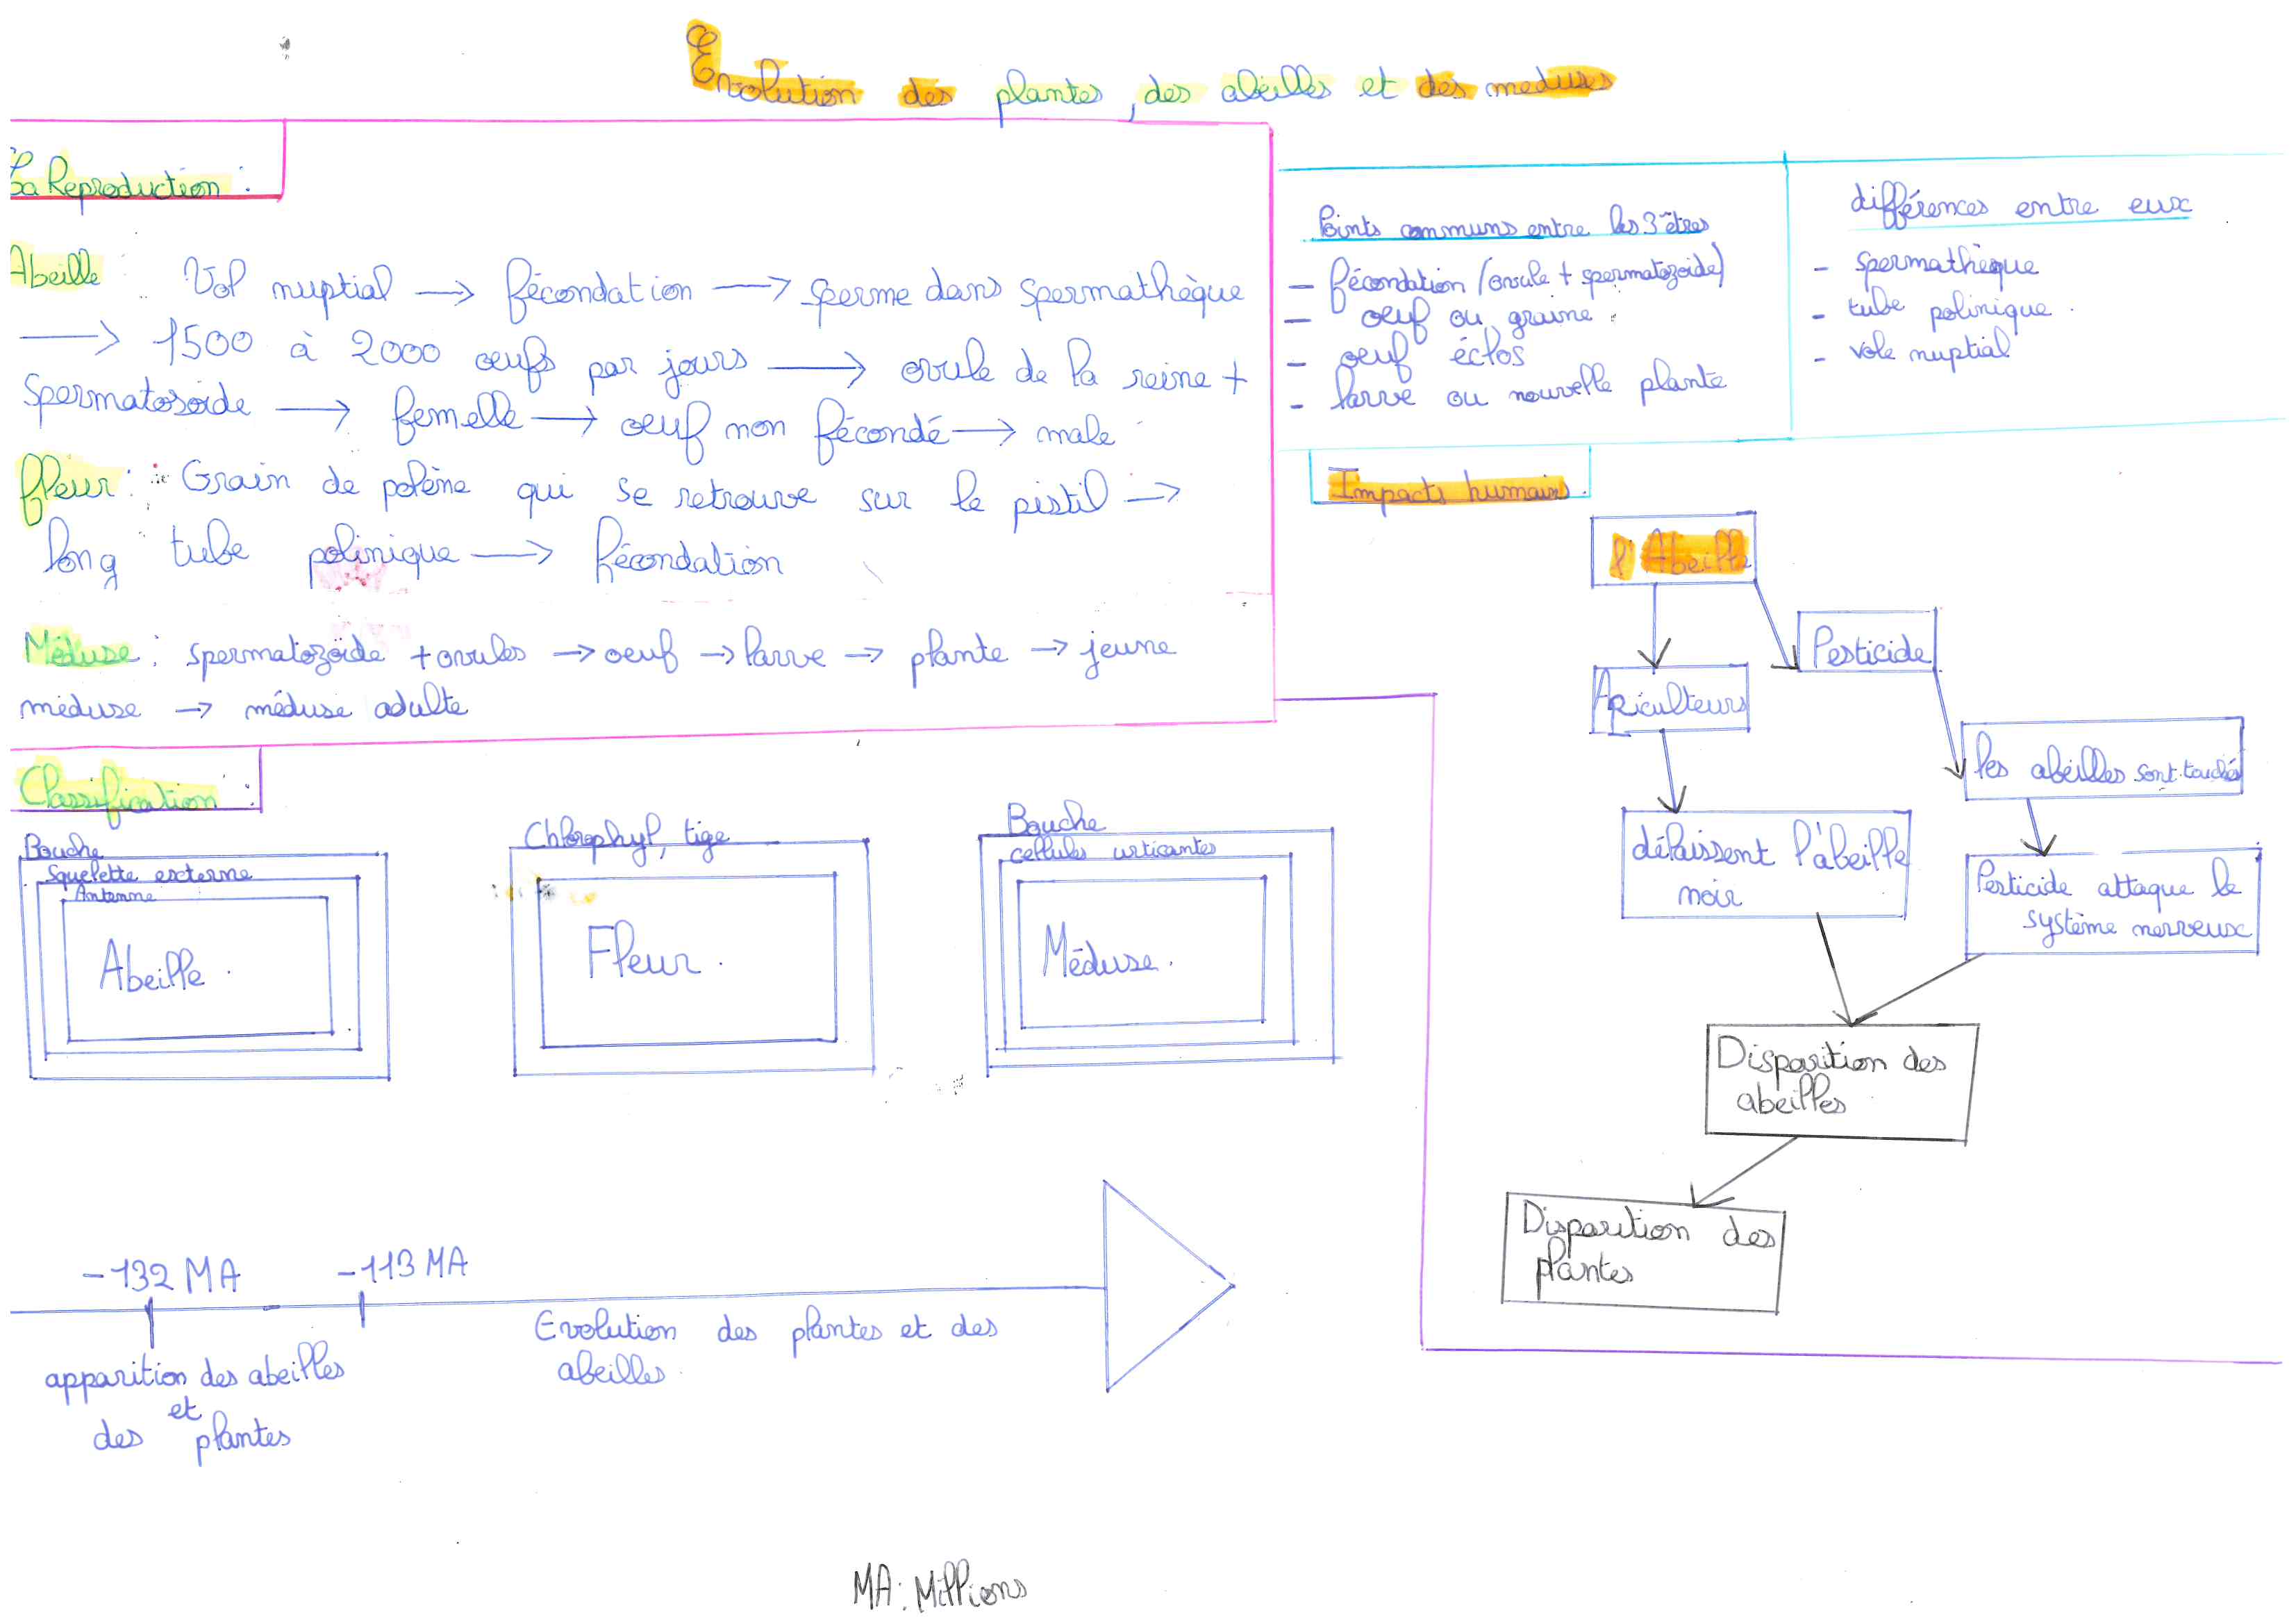 Evolution des plantes, des abeilles et des meduses
La Reproduction :
Abeille : Vol nuptial → fécondation → sperme dans spermathèque
→ 1500 à 2000 oeufs par jours → ovule de la reine +
spermatosoide → femelle → oeuf non fécondé → male
fleur : Grain de polène qui se retrouve sur le pistil →
long tube polinique → fécondation
Méduse : spermatozoïde + ovules → oeuf → larve → plante → jeune
méduse → méduse adulte
Points communs entre les 3 êtres
- fécondation (ovule + spermatozoide)
- oeuf ou graine
- oeuf éclos
- larve ou nouvelle plante
différences entre eux
- spermathèque
- tube polinique
- vole nuptial
Impacts humains.
l'Abeille
Pesticide
Apiculteurs
les abeilles sont touchés
délaissent l'abeille
noir
Pesticide attaque le
système nerveux
Disparition des
abeilles
Disparition des
plantes
Classification :
Bouche
Squelette externe
Antenne
Abeille.
Chlorophyl, tige
Fleur.
Bouche
cellules urticantes
Méduse.
-132 MA
-113 MA
apparition des abeilles
et
des plantes
Evolution des plantes et des
abeilles.
MA : Millions